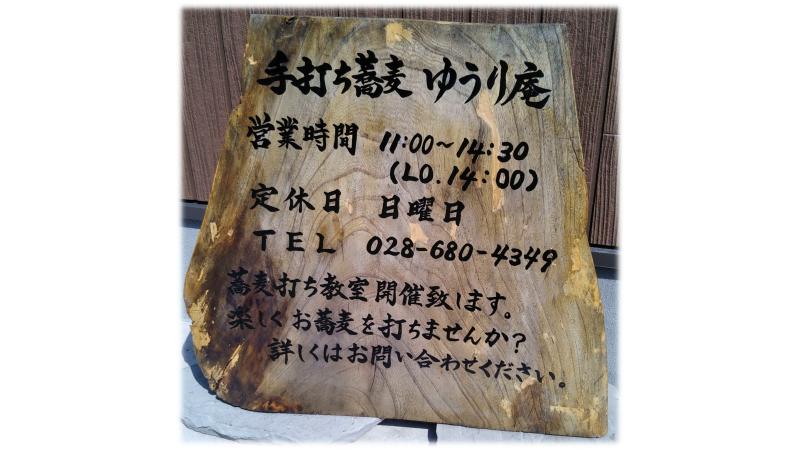 手打ち蕎麦 ゆうり庵
営業時間 11:00～14:30
(LO.14:00)
定休日 日曜日
TEL 028-680-4349
蕎麦打ち教室開催致します。
楽しくお蕎麦を打ちませんか?
詳しくはお問い合わせください。